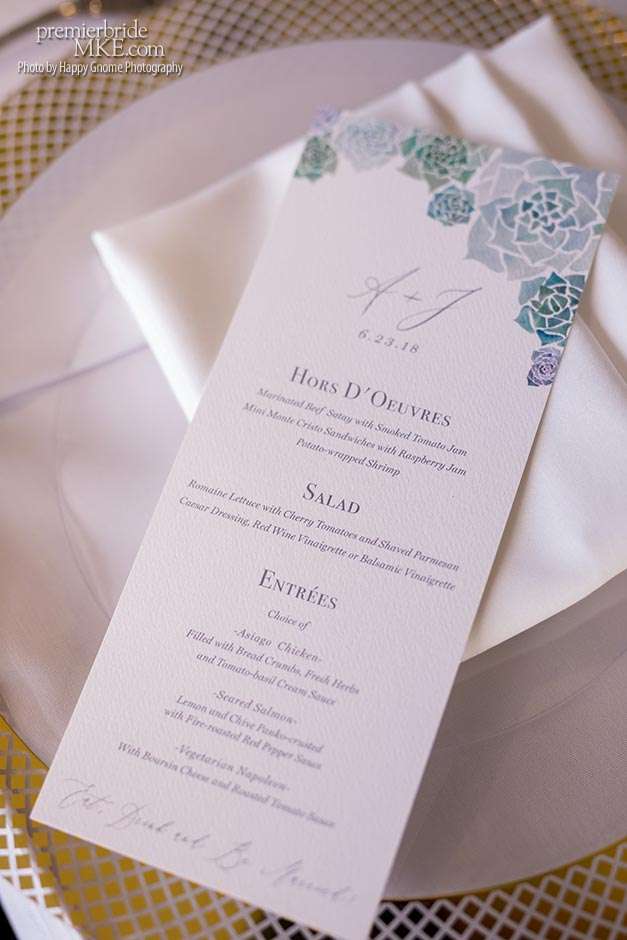 premierbride
MKE.com
Photo by Happy Gnome Photography
A + J
6.23.18
Hors D'Oeuvres
Marinated Beef Satay with Smoked Tomato Jam
Mini Monte Cristo Sandwiches with Raspberry Jam
Potato-wrapped Shrimp
Salad
Romaine Lettuce with Cherry Tomatoes and Shaved Parmesan
Caesar Dressing, Red Wine Vinaigrette or Balsamic Vinaigrette
Entrées
Choice of
-Asiago Chicken-
Filled with Bread Crumbs, Fresh Herbs
and Tomato-basil Cream Sauce
-Seared Salmon-
Lemon and Chive Panko-crusted
with Fire-roasted Red Pepper Sauce
-Vegetarian Napoleon-
With Boursin Cheese and Roasted Tomato Sauce
Eat, Drink and Be Married